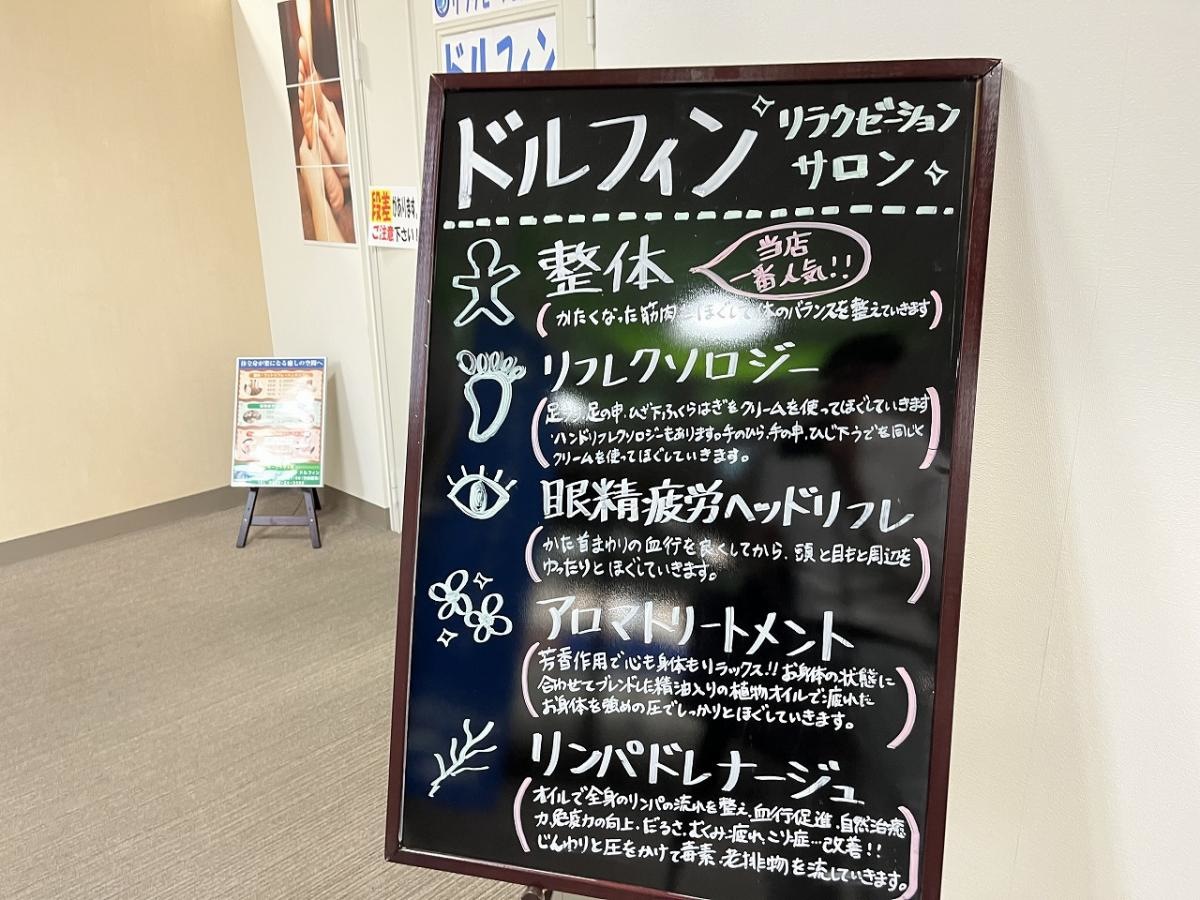 ドルフィン
段差があります。
ご注意下さい！
ドルフィン
リラクゼーション
サロン
整体
当店
一番人気!!
かたくなった筋肉をほぐして体のバランスを整えていきます
リフレクソロジー
足ウラ、足の甲、ひざ下、ふくらはぎをクリームを使ってほぐしていきます
・ハンドリフレクソロジーもあります。手のひら、手の甲、ひじ下うでを同じく
クリームを使ってほぐしていきます。
眼精疲労ヘッドリフレ
かた首まわりの血行を良くしてから、頭と目もと周辺を
ゆったりとほぐしていきます。
アロマトリートメント
芳香作用で心も身体もリラックス!! お身体の状態に
合わせてブレンドした精油入りの植物オイルで疲れた
お身体を強めの圧でしっかりとほぐしていきます。
リンパドレナージュ
オイルで全身のリンパの流れを整え、血行促進、自然治癒
力、免疫力の向上、だるさ、むくみ、疲れ、こり症…改善!!
じんわりと圧をかけて毒素、老排物を流していきます。